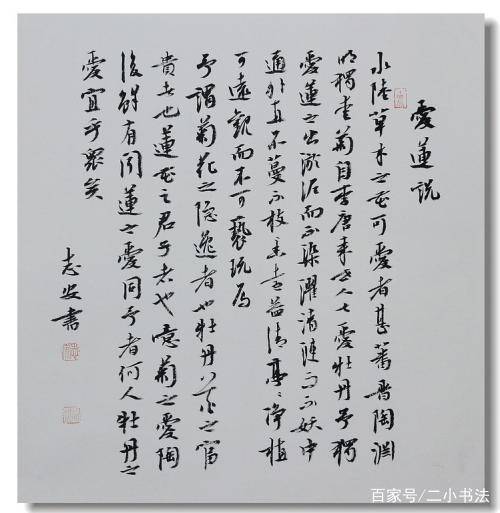 愛蓮説
水陸草木之花可愛者甚蕃晋陶淵
明獨愛菊自李唐来世人甚愛牡丹予獨
愛蓮之出淤泥而不染濯清漣而不妖中
通外直不蔓不枝香遠益清亭〻淨植
可遠觀而不可褻玩焉
予謂菊花之隐逸者也牡丹花之富
貴者也蓮花之君子者也噫菊之愛陶
後鮮有聞蓮之愛同予者何人牡丹之
愛宜乎眾矣
志安書
百家号/二小书法